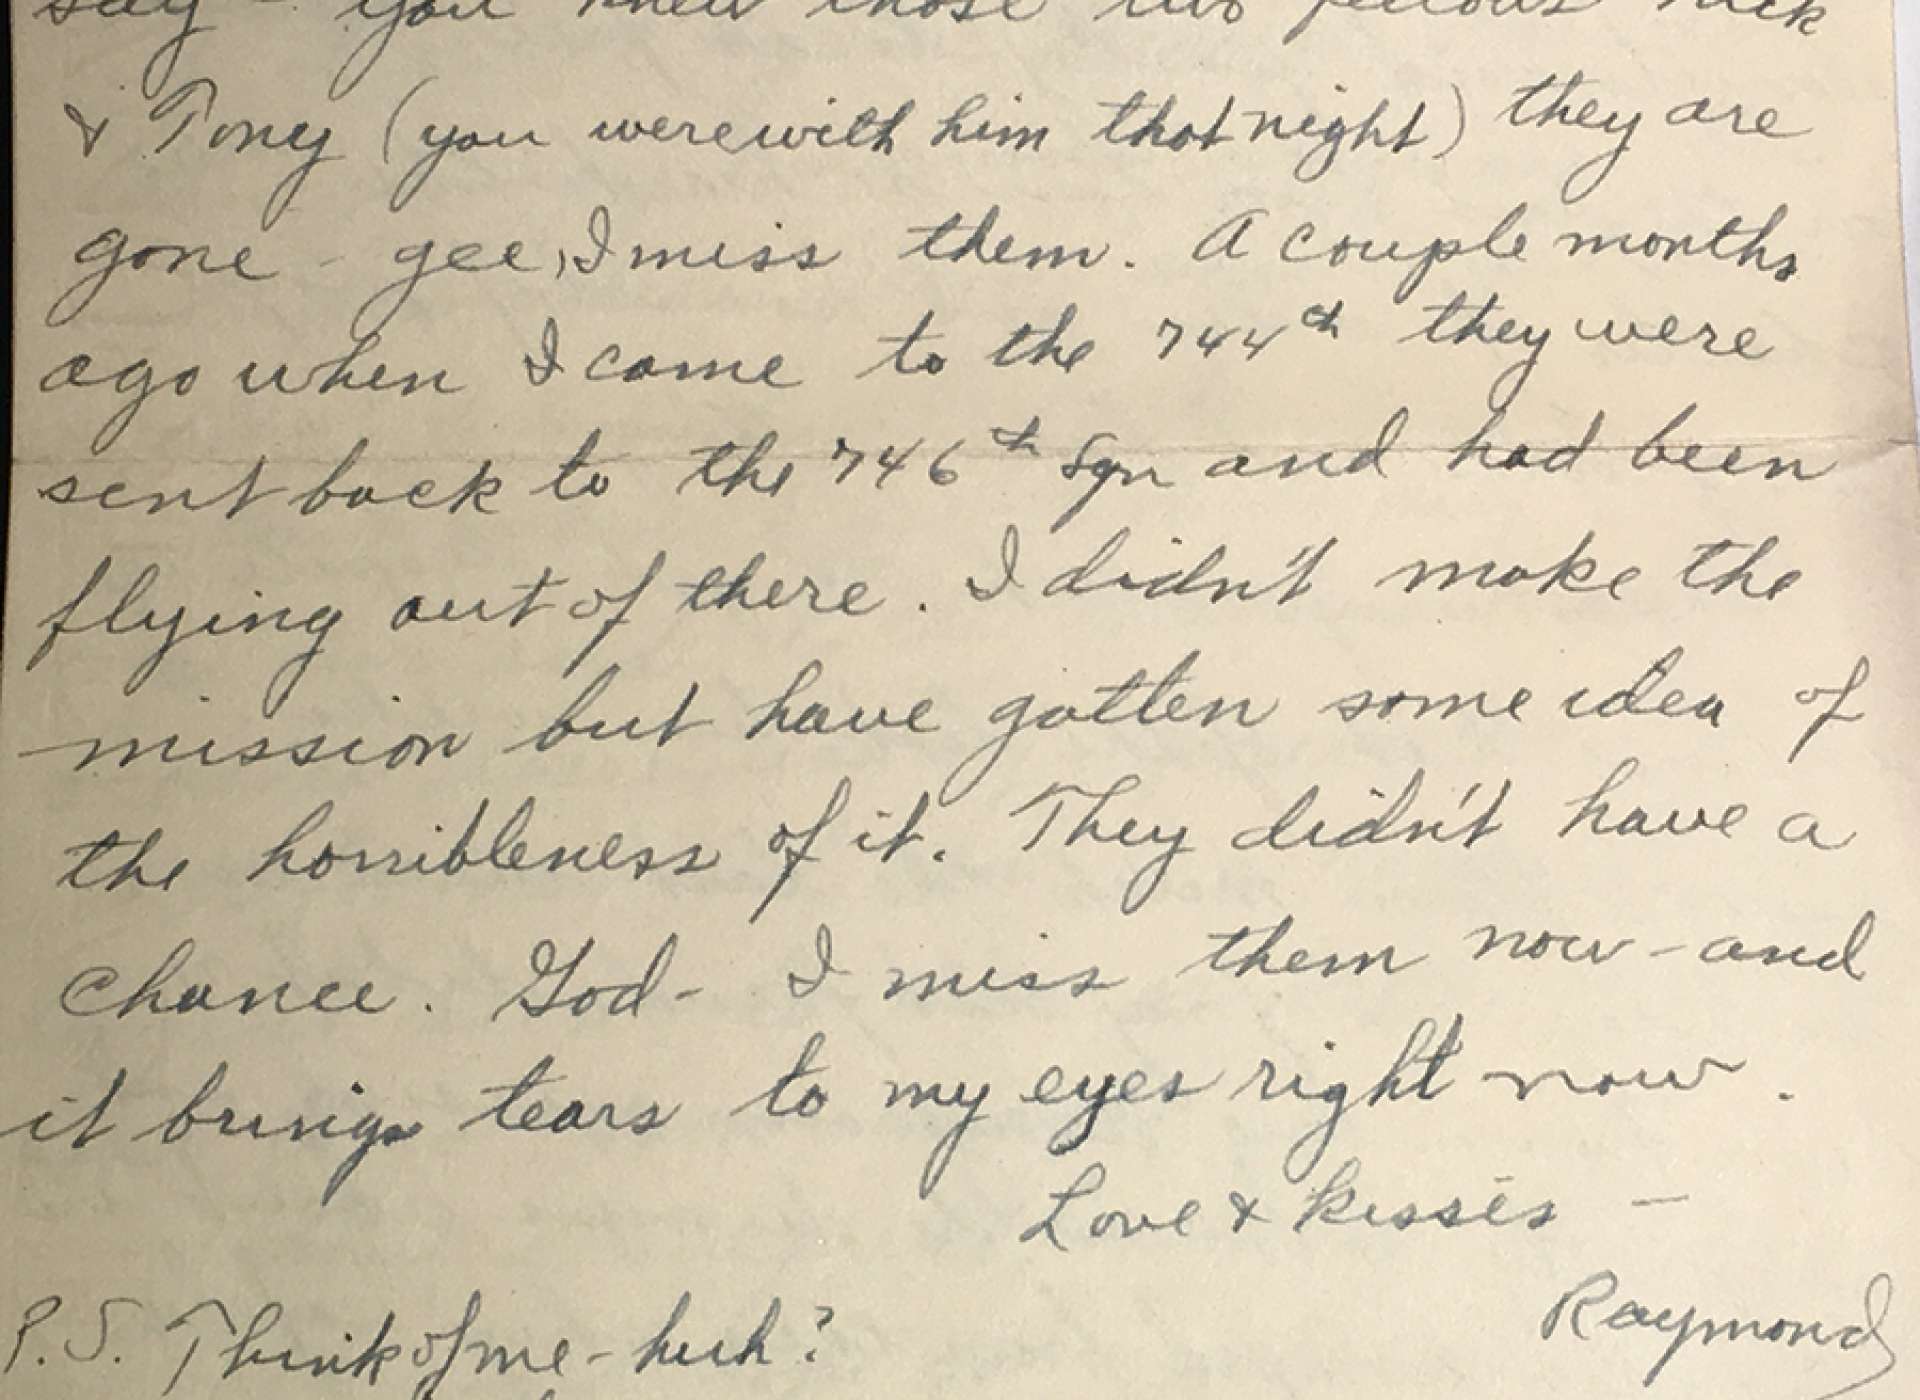 say - you knew those two fellows
& Tony (you were with him that night) they are
gone - gee, I miss them. A couple months
ago when I came to the 744th they were
sent back to the 746th Sqn and had been
flying out of there. I didn't make the
mission but have gotten some idea of
the horribleness of it. They didn't have a
chance. God - I miss them now - and
it brings tears to my eyes right now.
Love & Kisses -
Raymond
P.S. Think of me - huh?